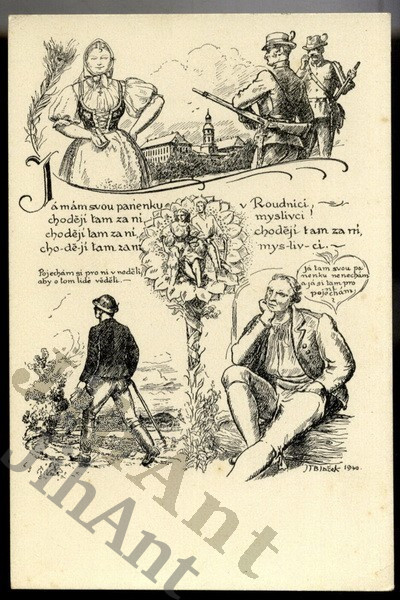 Já mám svou panenku v Roudnici,
chodějí tam za ní, myslivci!
chodějí tam za ní, chodějí tam za ní,
cho-dě-jí tam za ní mys-liv-ci.
Pojedu si pro ni v neděli,
aby o tom lidé věděli.
Já tam svou pa
nenku nenechám
a já si tam pro
ni
pojechám!
JTBlažek 1940.
JihAnt
JihAnt